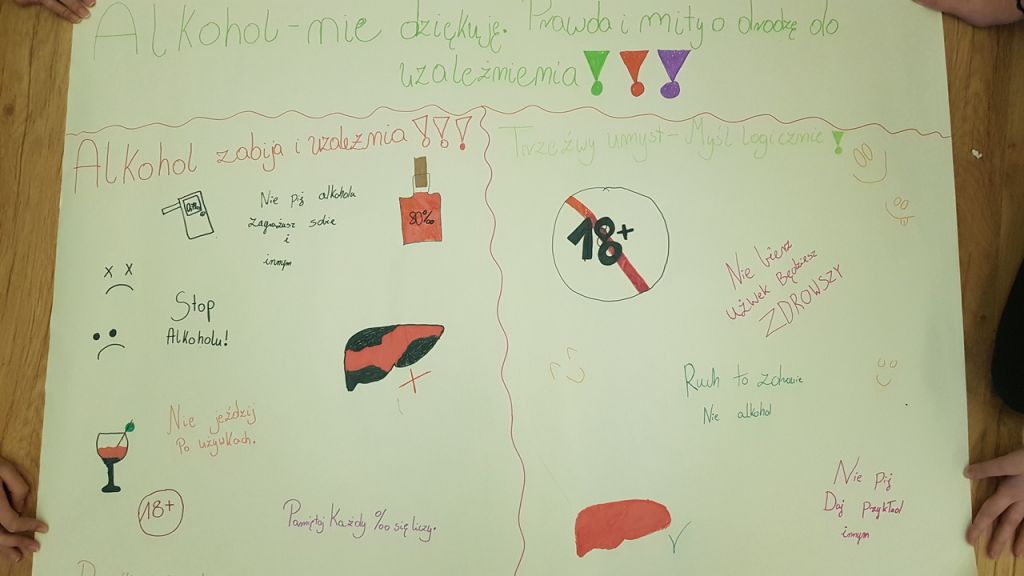 Alkohol-nie dziękuję. Prawda i mity o drodzę do
uzależnienia!!!
Alkohol zabija i uzależnia!!!
Nie pij alkoholu
Zagrażasz sobie
i
innym
80‰
Stop
Alkoholu!
Nie jeździj
Po używkach.
18+
Pamiętaj Każdy ‰ się liczy.
Trzeźwy umysł-Myśl Logicznie!
18+
Nie bierz
używek Będziesz
ZDROWSZY
Ruch to zdrowie
Nie alkohol
Nie Pij
Daj Przykład
innym